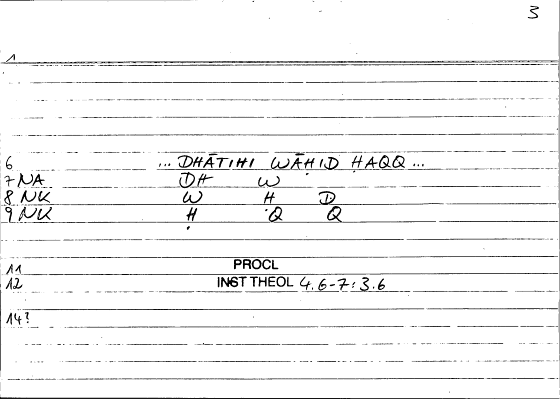 3
1
6 ... DHĀTIHI WĀḤID ḤAQQ ...
7 NA DH W
8 NK W Ḥ D
9 NK Ḥ Q Q
11 PROCL
12 INST THEOL 4.6-7: 3.6
14?